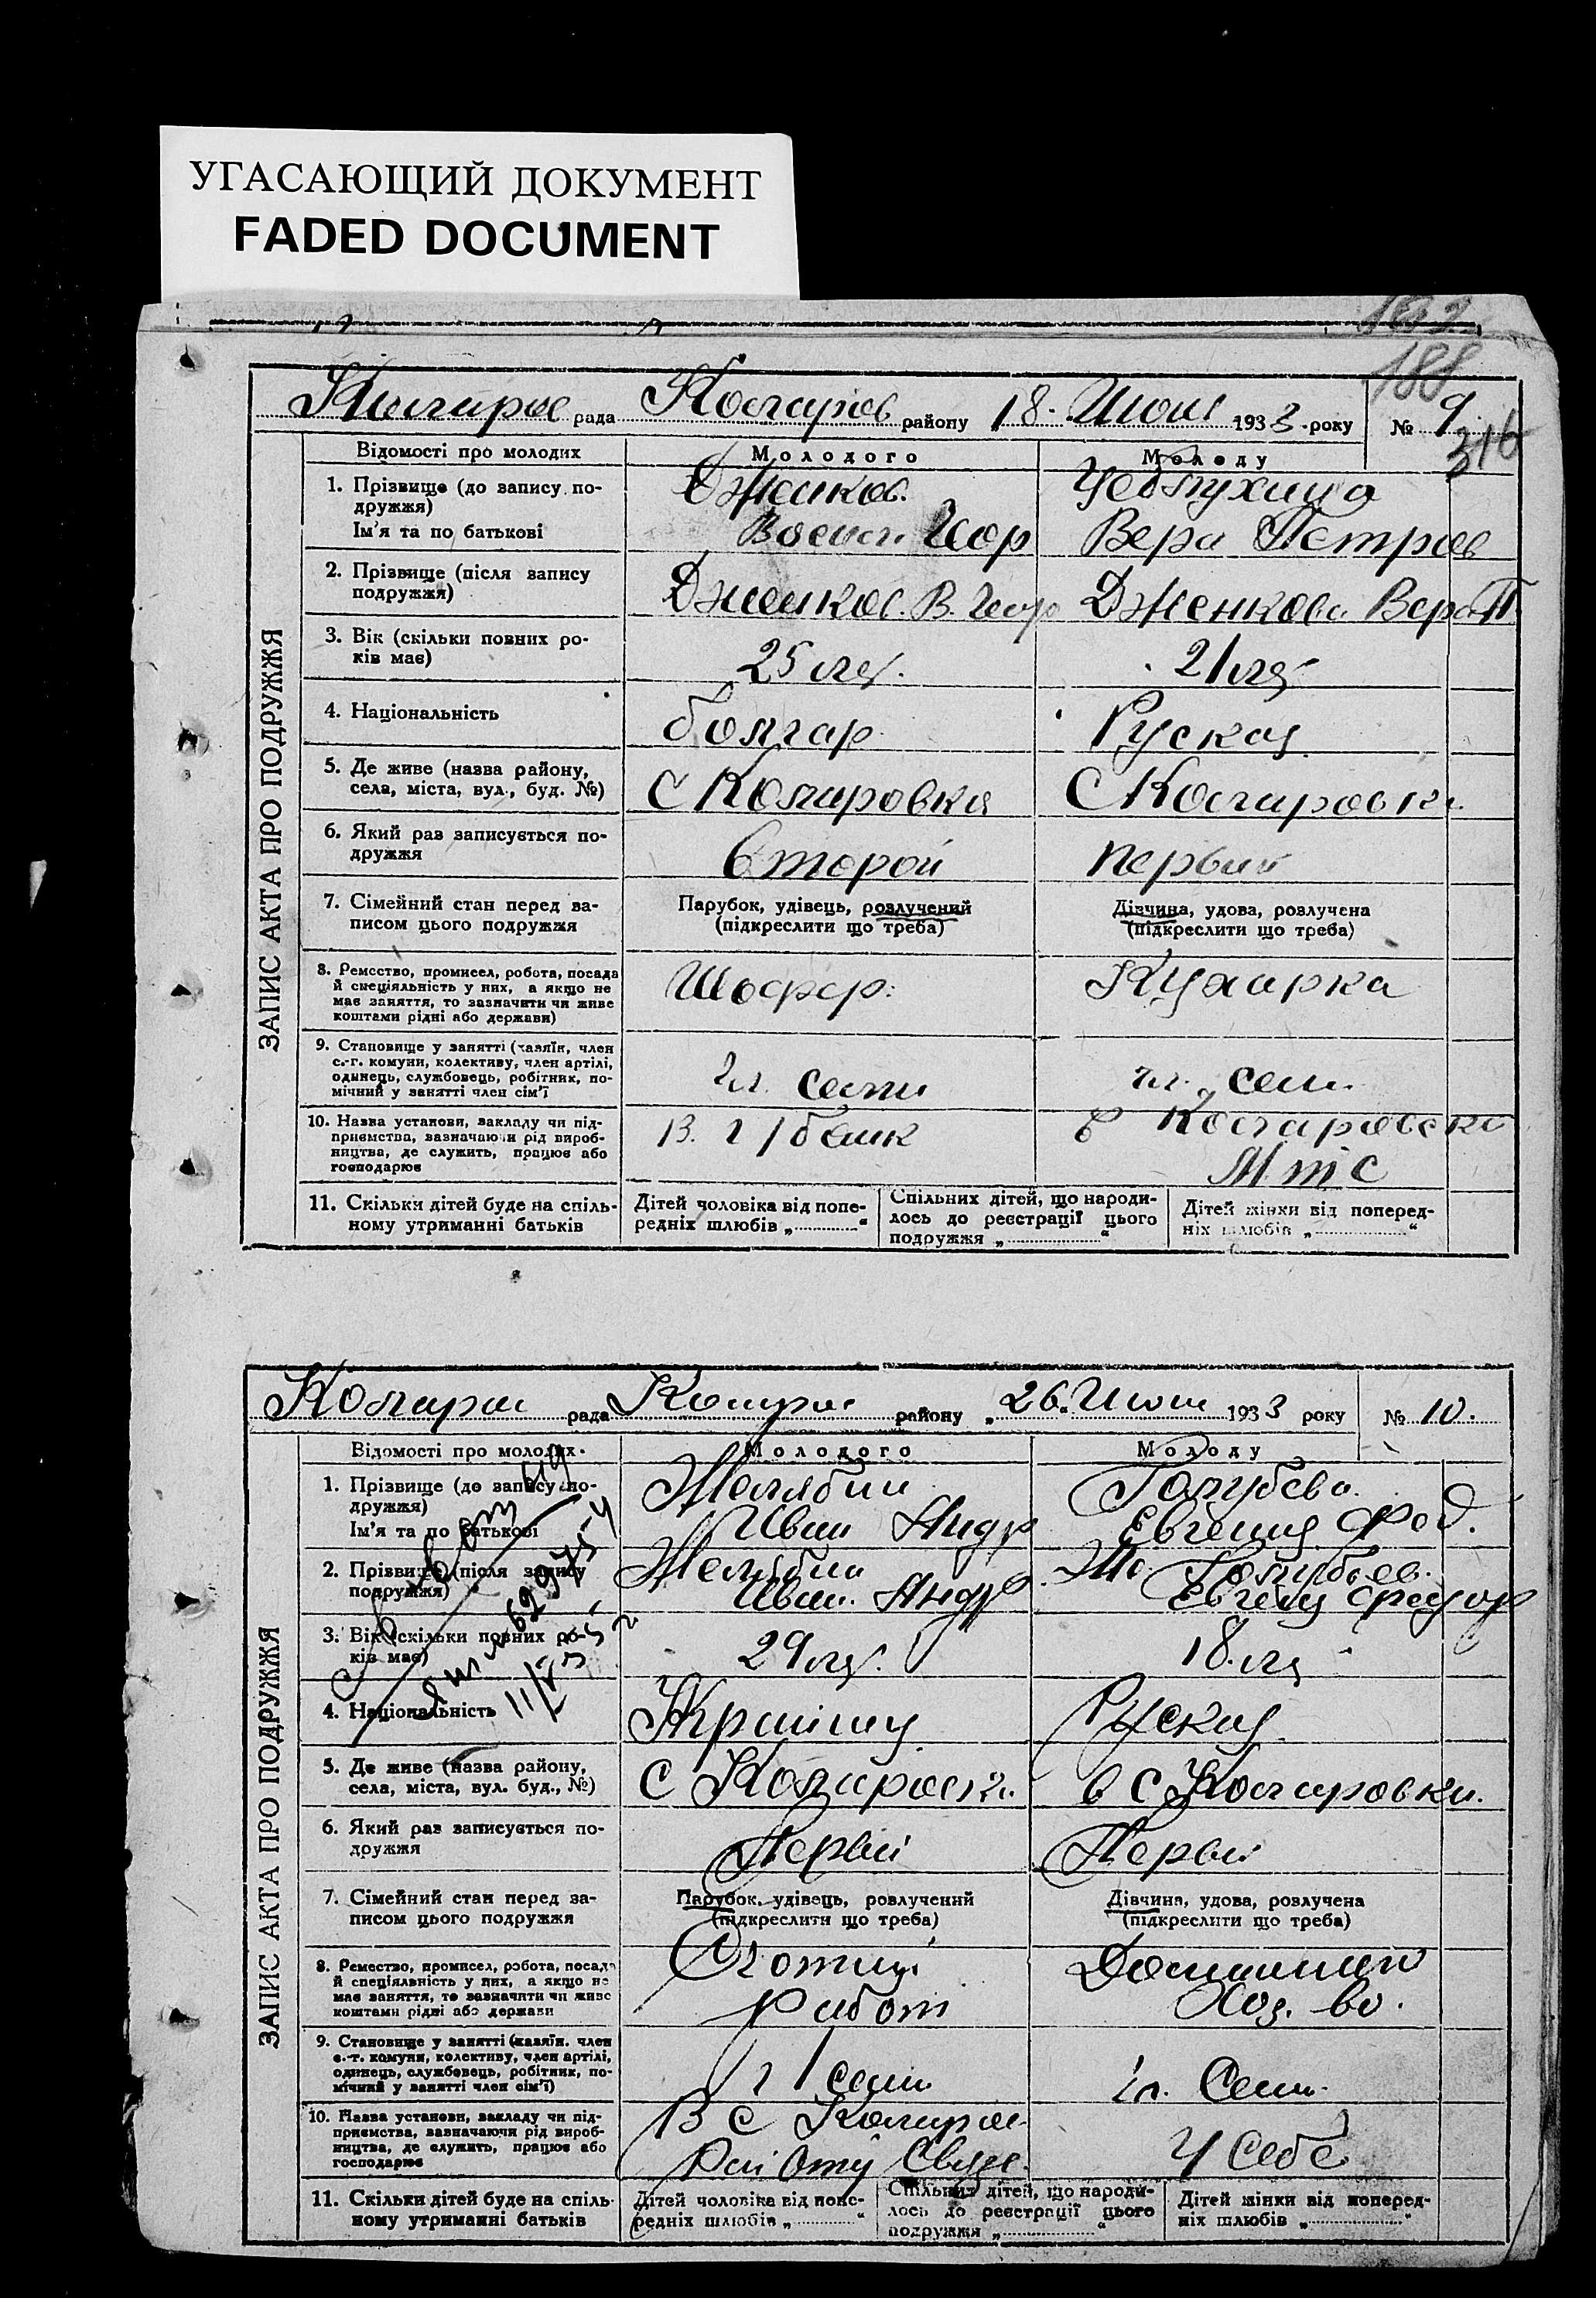 УГАСАЮЩИЙ ДОКУМЕНТ
FADED DOCUMENT
188
316
рада Коларов району 18. Июня 1933 року № 9
ЗАПИС АКТА ПРО ПОДРУЖЖЯ
Відомості про молодих Молодого Молоду
1. Прізвище (до запису по-
дружжя)
Ім'я та по батькові
Вера Петров
2. Прізвище (після запису
подружжя)
Дженков. В. Дженкова Вера П.
3. Вік (скільки повних ро-
ків має)
25 лет. 21 лет
4. Національність болгар Руская
5. Де живе (назва району,
села, міста, вул., буд. №)
С Коларовка С Коларовка
6. Який раз записується по-
дружжя
Второй первый
7. Сімейний стан перед за-
писом цього подружжя
Парубок, удівець, розлучений
(підкреслити що треба)
Дівчина, удова, розлучена
(підкреслити що треба)
8. Ремество, промисел, робота, посада
й спеціяльність у них, а якщо не
має заняття, то зазначити чи живе
коштами рідні або держави)
Шофер. Кухарка
9. Становище у занятті (хазяїн, член
с.-г. комуни, колективу, член артілі,
одинець, службовець, робітник, по-
мічний у занятті член сім'ї
чл. семи чл. сем.
10. Назва установи, закладу чи під-
приємства, зазначаючи рід вироб-
ництва, де служить, працює або
господарює
в Коларовско
МТС
11. Скільки дітей буде на спіль-
ному утриманні батьків
Дітей чоловіка від попе-
редніх шлюбів „ “
Спільних дітей, що народи-
лось до реєстрації цього
подружжя „ “
Дітей жінки від поперед-
ніх шлюбів „ “
Коларов рада району „26. Июня 1933 року № 10.
ЗАПИС АКТА ПРО ПОДРУЖЖЯ
Відомості про молодих. Молодого Молоду
1. Прізвище (до запису по-
дружжя)
Ім'я та по батькові
Желябин Голубева.
Иван Андр Евгения Фед.
2. Прізвище (після запису
подружжя)
Желябин
Иван. Андр Евгения Федор
3. Вік (скільки повних ро-
ків має)
29 лет. 18. лет
4. Національність Руская
5. Де живе (назва району,
села, міста, вул. буд., №)
С Коларовк. в С Коларовки.
6. Який раз записується по-
дружжя
Первый Первый
7. Сімейний стан перед за-
писом цього подружжя
Парубок, удівець, розлучений
(підкреслити що треба)
Дівчина, удова, розлучена
(підкреслити що треба)
8. Ремество, промисел, робота, посада
й спеціяльність у них, а якщо не
має заняття, то зазначити чи живе
коштами рідні або держави
Работ Хоз. во.
9. Становище у занятті (хазяїн. член
с.-г. комуни, колективу, член артілі,
одинець, службовець, робітник, по-
мічний у занятті член сім'ї)
сем. чл. Сем.
10. Назва установи, закладу чи під-
приємства, зазначаючи рід вироб-
ництва, де служить, працює або
господарює
В С Коларов
У Себе
11. Скільки дітей буде на спіль-
ному утриманні батьків
Дітей чоловіка від попе-
редніх шлюбів „ “
Спільних дітей, що народи-
лось до реєстрації цього
подружжя „ “
Дітей жінки від поперед-
ніх шлюбів „ “